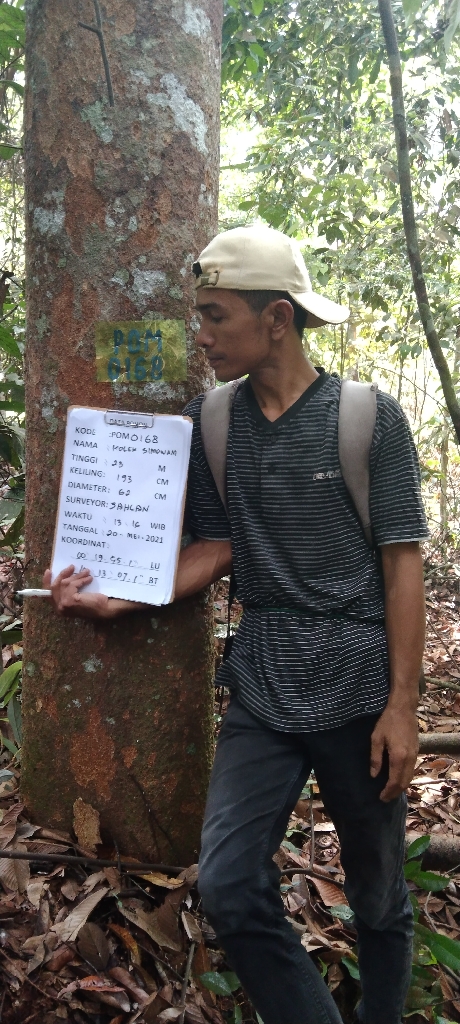 POM
0168
DATA POHON
KODE : POM0168
NAMA : KOLEK SIMOWAM
TINGGI : 23 M
KELILING: 193 CM
DIAMETER: 62 CM
SURVEYOR: SAHLAN
WAKTU : 13 : 16 WIB
TANGGAL : 20 - MEI - 2021
KOORDINAT:
00° 19' 55. 1" LU
13' 07. 1" BT